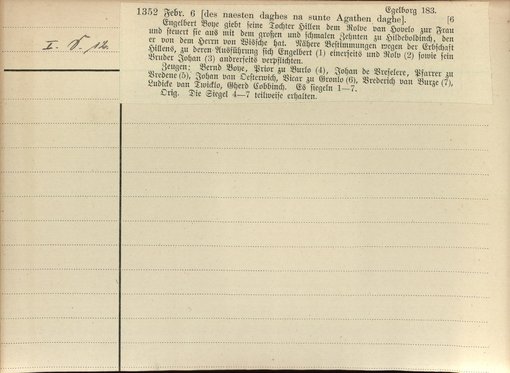 Egelborg 183.
1352 Febr. 6 [des naesten daghes na sunte Agathen daghe]. [6
Engelbert Boye giebt seine Tochter Hillen dem Rolve van Hovelo zur Frau
und steuert sie aus mit dem großen und schmalen Zehnten zu Hildeboldinch, den
er von dem Herrn von Wische hat. Nähere Bestimmungen wegen der Erbschaft
Hillens, zu deren Ausführung sich Engelbert (1) einerseits und Rolv (2) sowie sein
Bruder Johan (3) andrerseits verpflichten.
Zeugen: Bernd Boye, Prior zu Burlo (4), Johan de Vreselere, Pfarrer zu
Vredene (5), Johan van Oesterwich, Vicar zu Gronlo (6), Vrederich van Burze (7),
Ludike van Twicklo, Gherd Cobbinch. Es siegeln 1—7.
Orig. Die Siegel 4—7 teilweise erhalten.